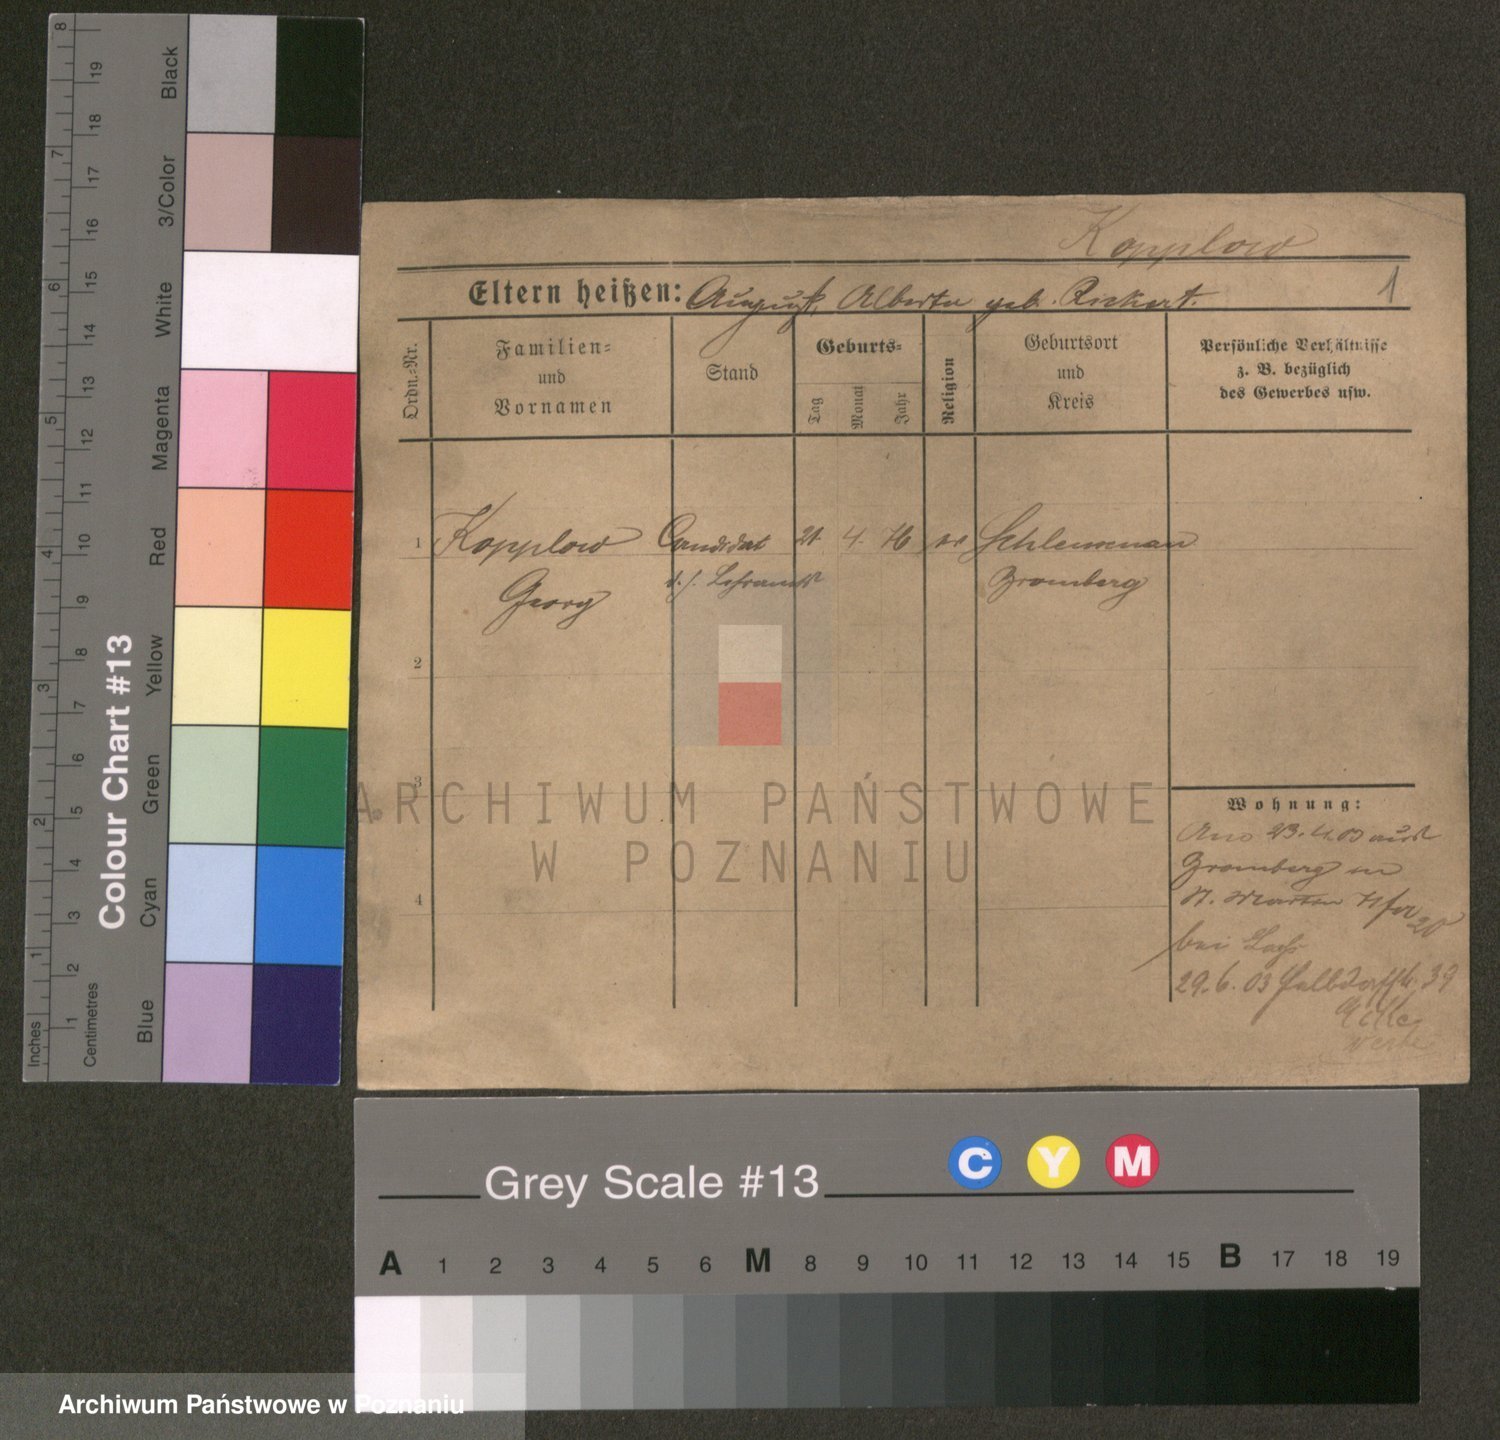 Kopplow
Eltern heißen: August, Alberta geb. Rickert.
1
Ordn.=Nr.
Familien=
und
Vornamen
Stand
Geburts=
Tag
Monat
Jahr
Religion
Geburtsort
und
Kreis
Persönliche Verhältnisse
z. B. bezüglich
des Gewerbes usw.
1 Kopplow Candidat 21. 4. 76 ev Schleusenau
Georg d. h. Lehramts Bromberg
2
3
4
Wohnung:
23. 4. 03 aus
Bromberg in
St. Martin 20
bei
29. 6. 03 39
ARCHIWUM PAŃSTWOWE
W POZNANIU
Colour Chart #13
Inches
1 2 3 4 5 6 7 8
Centimetres
1 2 3 4 5 6 7 8 9 10 11 12 13 14 15 16 17 18 19
Blue
Cyan
Green
Yellow
Red
Magenta
White
3/Color
Black
Grey Scale #13
C Y M
A 1 2 3 4 5 6 M 8 9 10 11 12 13 14 15 B 17 18 19
Archiwum Państwowe w Poznaniu